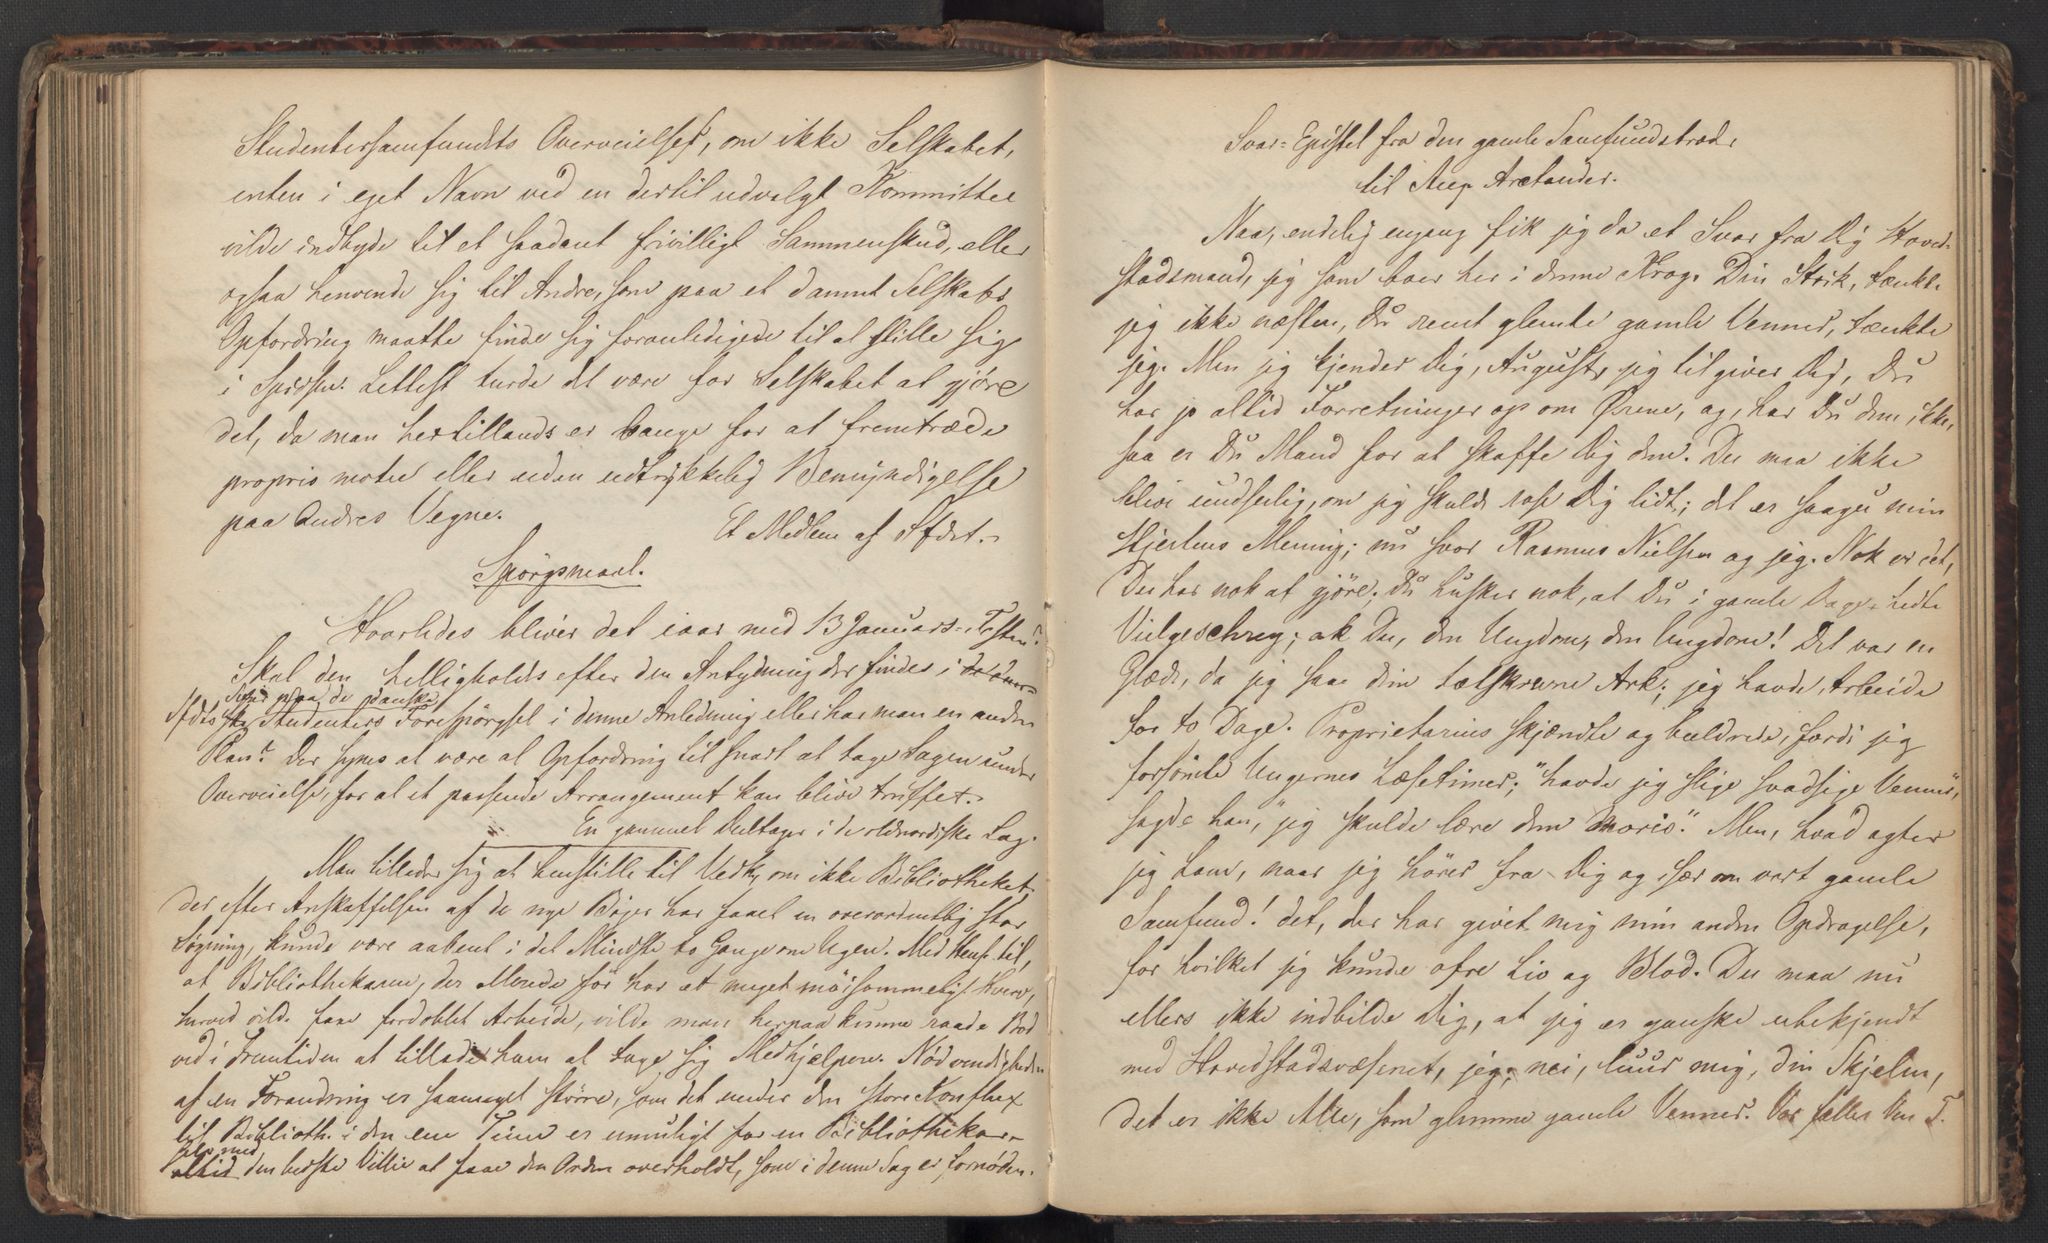 Studentersamfundets Overveielse, om ikke Selskabet,
enten i eget Navn ved en dertil udvalgt Kommittee
vilde indbyde til et saadant frivilligt Sammenskud, eller
ogsaa henvende sig til Andre, som paa et dannet Selskabs
Opfordring maatte finde sig foranledigede til at stille sig
i Spidsen. Lettest turde det være for Selskabet at gjöre
det, da man hertillands er bange for at fremtræde
proprio motu eller uden udtrykkelig Bemyndigelse
paa Andres Vegne.
Et Medlem af Sfdet.
Spörgsmaal.
Hvorledes bliver det iaar med 13 Januars-Festen?
Skal den helligholdes efter den Antydning der findes i
Svar paa de danske
Sfdets Studenters Forespörgsel i denne Anledning eller har man en anden
Plan? Der synes at være al Opfordring til snart at tage Sagen under
Overveielse, for at et passende Arrangement kan blive truffet.
En gammel Deltager i de oldnordiske Lag.
Man tillader sig at henstille til Vedk, om ikke Bibliotheket
der efter Anskaffelsen af de nye Böger har faaet en overordentlig stor
Sögning, kunde være aabent i det Mindste to Gange om Ugen. Med Hens. til,
at Bibliothekaren, der allerede för har et meget möisommeligt Hverv,
herved vilde faae fordoblet Arbeide, vilde man herpaa kunne raade Bod
ved i Fremtiden at tillade ham at tage sig Medhjælpere. Nödvendigheden
af en Forandring er saameget större, som det under den store Konflux
til Biblioth. i den ene Time er umuligt for en Bibliothekar
selv med
altid den bedste Villie at faae den Orden overholdt, som i denne Sag er fornöden.
Svar-Epistel fra den gamle Samfundstræde
til Aug. Arctander.
Naa, endelig engang fik jeg da et Svar fra Dig Hoved-
stadsmand, jeg som boer her i denne Krog. Din Strik, tænkte
jeg ikke næsten, Du reent glemte gamle Venner, tænkte
jeg. Men jeg kjender Dig, August, jeg tilgiver Dig, Du
har jo altid Forretninger op om Ørene, og, har Du dem ikke,
saa er Du Mand for at skaffe Dig dem. Du maa ikke
blive undseelig, om jeg skulde rose Dig lidt; det er saagu min
Hjertens Mening; nu svor Rasmus Nielsen og jeg. Nok er det,
Du har nok at gjöre; Du husker nok, at Du i gamle Dage hedte
Vielgeschrey; ak Du, den Ungdom, den Ungdom! Det var en
Glæde, da jeg saae dine tætskrevne Ark; jeg havde Arbeide
for to Dage. Proprietarius skjændte og buldrede, fordi jeg
forsömte Ungernes Læsetimer; "havde jeg slige svadsige Venner",
sagde han, "jeg skulde lære dem moris." Men, hvad agter
jeg ham, naar jeg hörer fra Dig og især om vort gamle
Samfund! det, der har givet mig min anden Opdragelse,
for hvilket jeg kunde ofre Liv og Blod. Du maa nu
ellers ikke indbilde Dig, at jeg er ganske ubekjendt
med Hovedstadsvæsenet, jeg; nei, luur mig, din Skjelm,
det er ikke Alle, som glemme gamle Venner. Vor fælles Ven T.